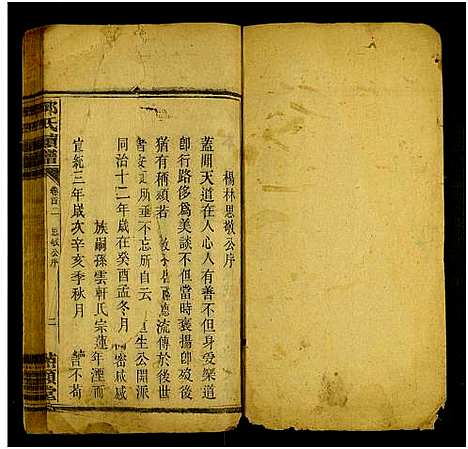 楊林思敬公序
蓋聞天道在人心人有善不但身受樂道
即行路侈為美談不但當時褒揚即歿後
猶有稱頌者 流傳於後世
書安 所 不忘所自云 生公開派
同治十二年歲在癸酉孟冬月 密成
族嗣孫雲軒氏宗蓮年湮而
宣統三年歲次辛亥季秋月 不
氏 譜
卷首二
思敬公序
二
堂